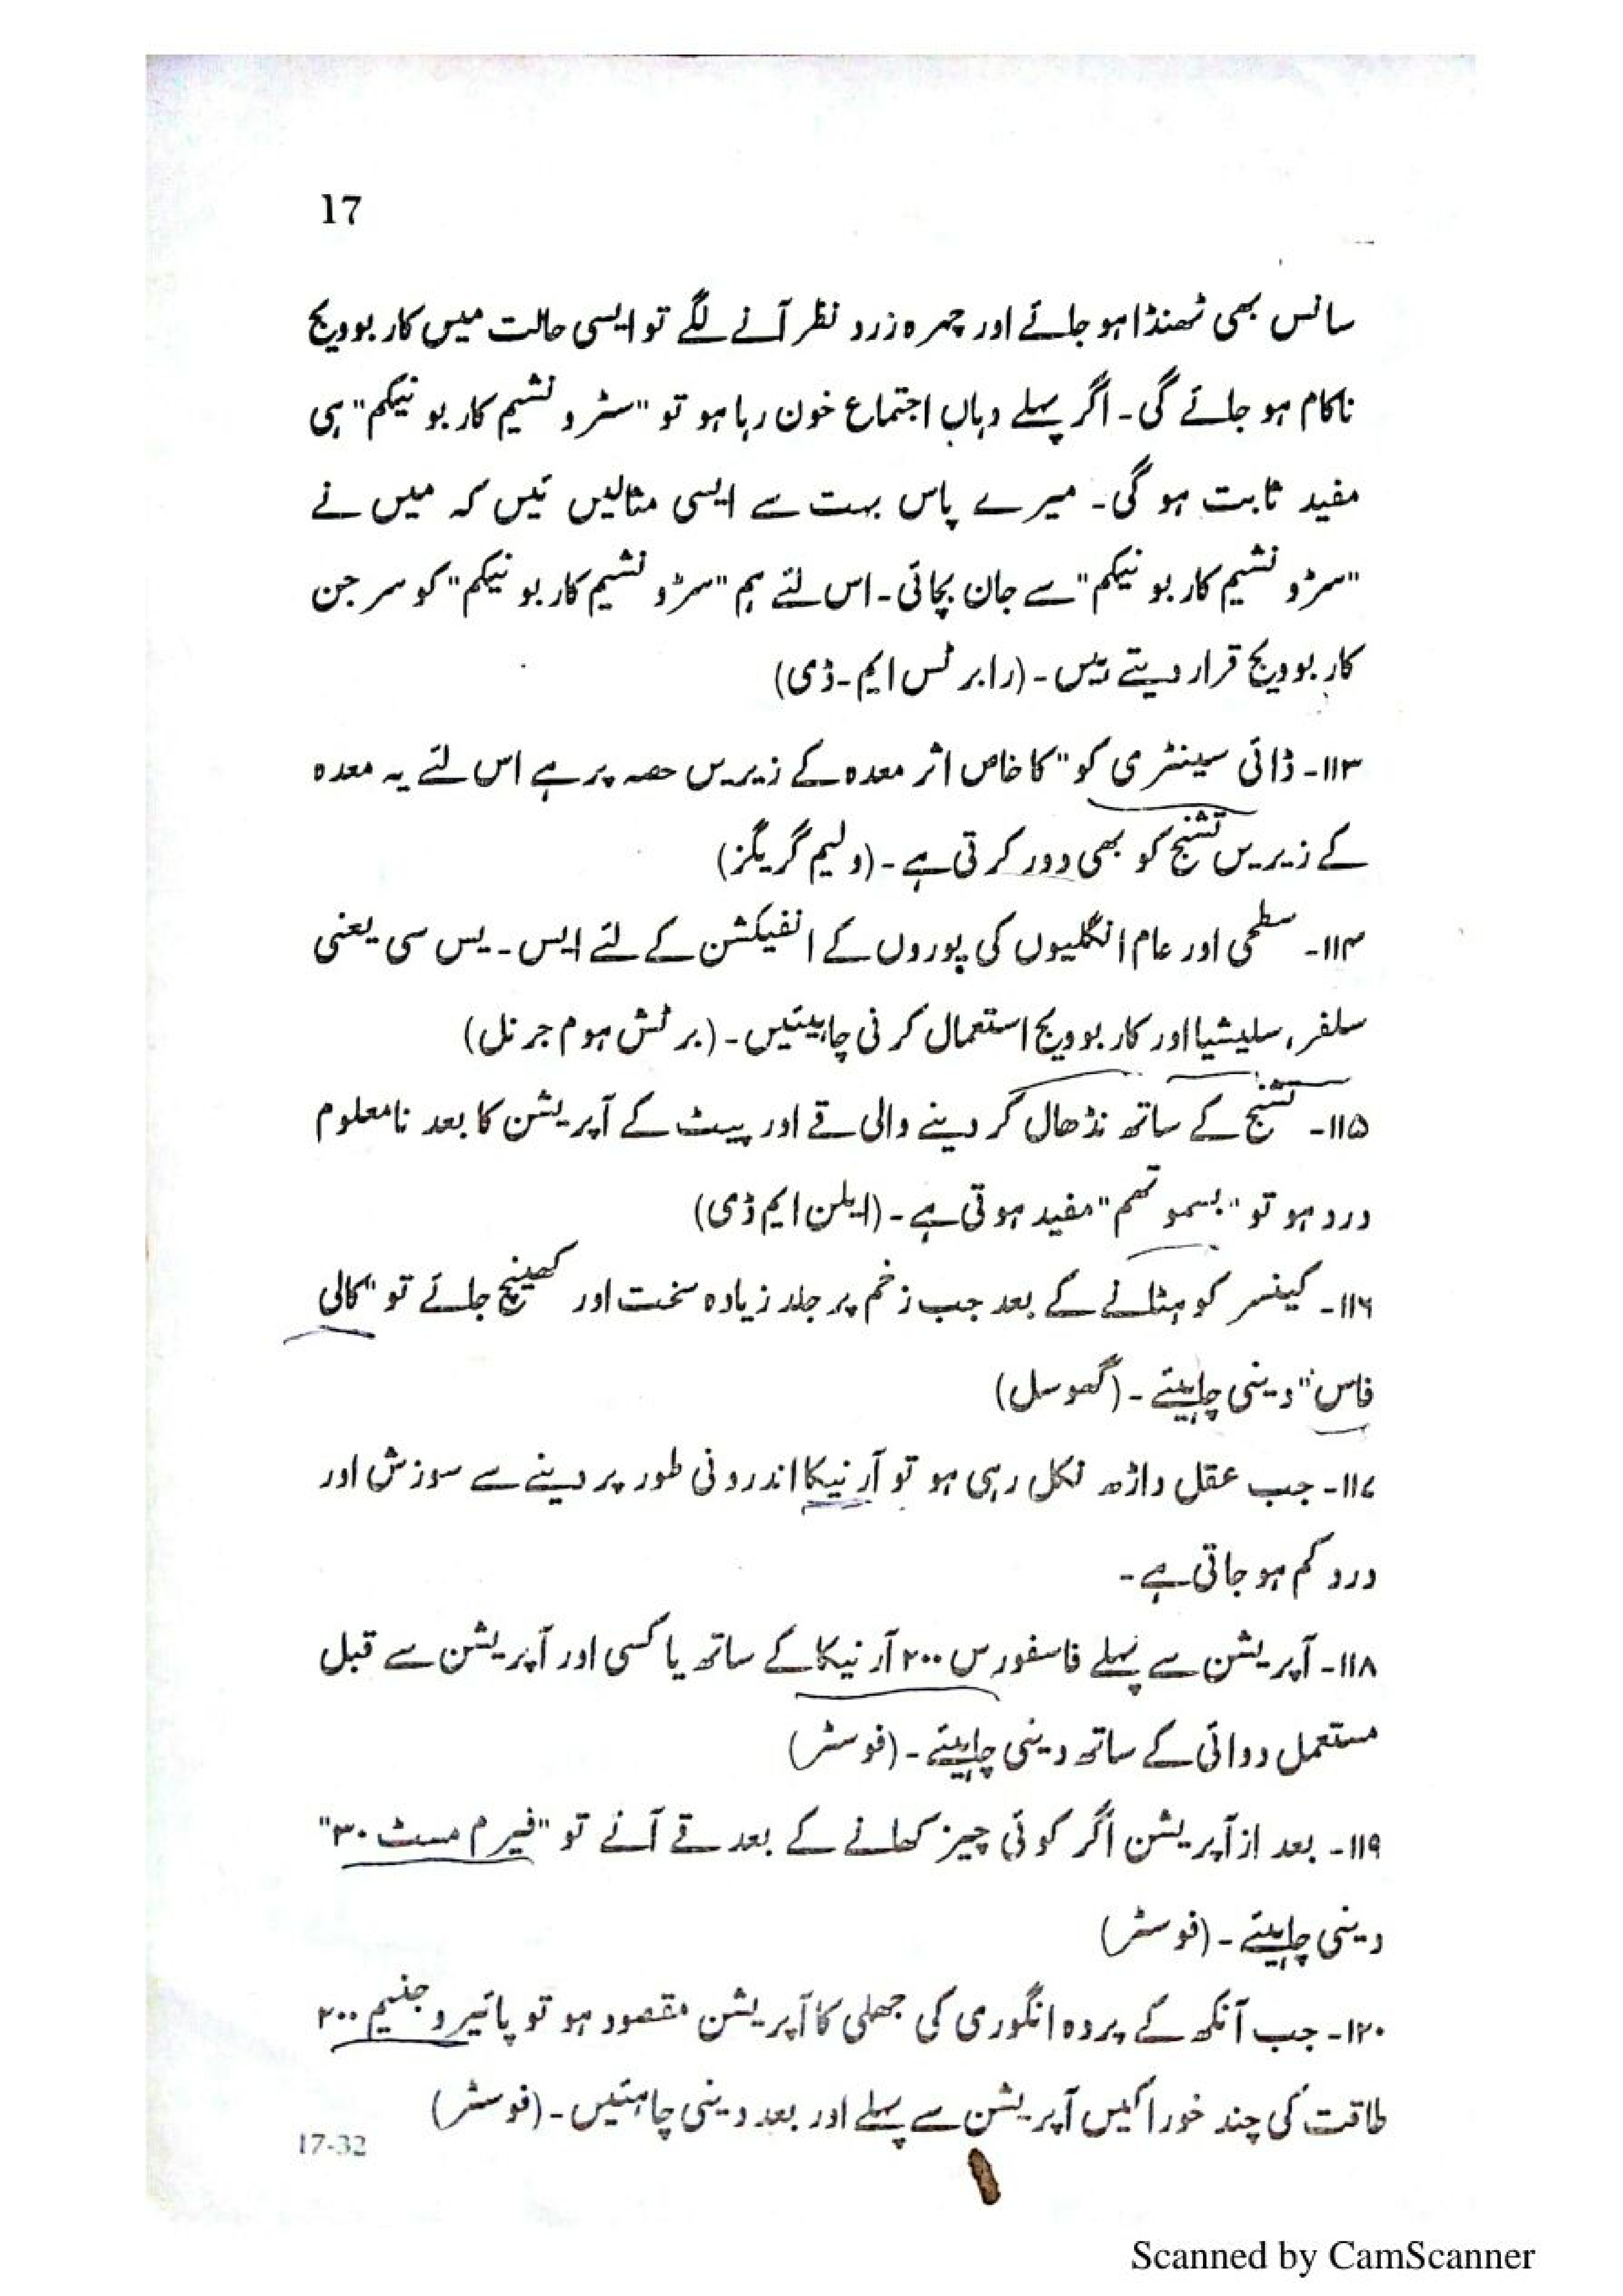 17
سانس بھی ٹھنڈا ہو جائے اور چہرہ زرد نظر آنے لگے تو ایسی حالت میں کاربوویج
ناکام ہو جائے گی۔ اگر پہلے وہاں اجتماع خون رہا ہو تو "سٹرونشیم کاربونیکم" ہی
مفید ثابت ہو گی۔ میرے پاس بہت سے ایسی مثالیں ئیں کہ میں نے
"سڑونشیم کاربونیکم" سے جان بچائی۔ اس لئے ہم "سڑونشیم کاربونیکم" کو سرجن
کاربوویج قرار دیتے ہیں۔ (رابرٹس ایم۔ڈی)
۱۱۳۔ ڈائی سینٹری کو" کا خاص اثر معدہ کے زیریں حصہ پر ہے اس لئے یہ معدہ
کے زیریں تشنج کو بھی دور کرتی ہے۔ (ولیم گریگز)
۱۱۴۔ سطحی اور عام انگلیوں کی پوروں کے انفیکشن کے لئے ایس۔ یس سی یعنی
سلفر، سلیشیا اور کاربوویج استعمال کرنی چاہیئیں۔ (برٹش ہوم جرنل)
۱۱۵۔ تشنج کے ساتھ نڈھال کر دینے والی قے اور پیٹ کے آپریشن کا بعد نامعلوم
درد ہو تو "بسموتھم" مفید ہوتی ہے۔ (ایلن ایم ڈی)
۱۱۶۔ کینسر کو ہٹانے کے بعد جب زخم پر جلد زیادہ سخت اور کھینچ جائے تو "کالی
فاس" دینی چاہیئے۔ (گھوسل)
۱۱۷۔ جب عقل داڑھ نکل رہی ہو تو آرنیکا اندرونی طور پر دینے سے سوزش اور
درد کم ہو جاتی ہے۔
۱۱۸۔ آپریشن سے پہلے فاسفورس ۲۰۰ آرنیکا کے ساتھ یا کسی اور آپریشن سے قبل
مستعمل دوائی کے ساتھ دینی چاہیئے۔ (فوسٹر)
۱۱۹۔ بعد از آپریشن اگر کوئی چیز کھانے کے بعد قے آئے تو "فیرم مسٹ ۳۰"
دینی چاہیئے۔ (فوسٹر)
۱۲۰۔ جب آنکھ کے پردہ انگوری کی جھلی کا آپریشن مقصود ہو تو پائیروجنیم ۲۰۰
طاقت کی چند خوراکیں آپریشن سے پہلے اور بعد دینی چاہئیں۔ (فوسٹر)
17-32
Scanned by CamScanner